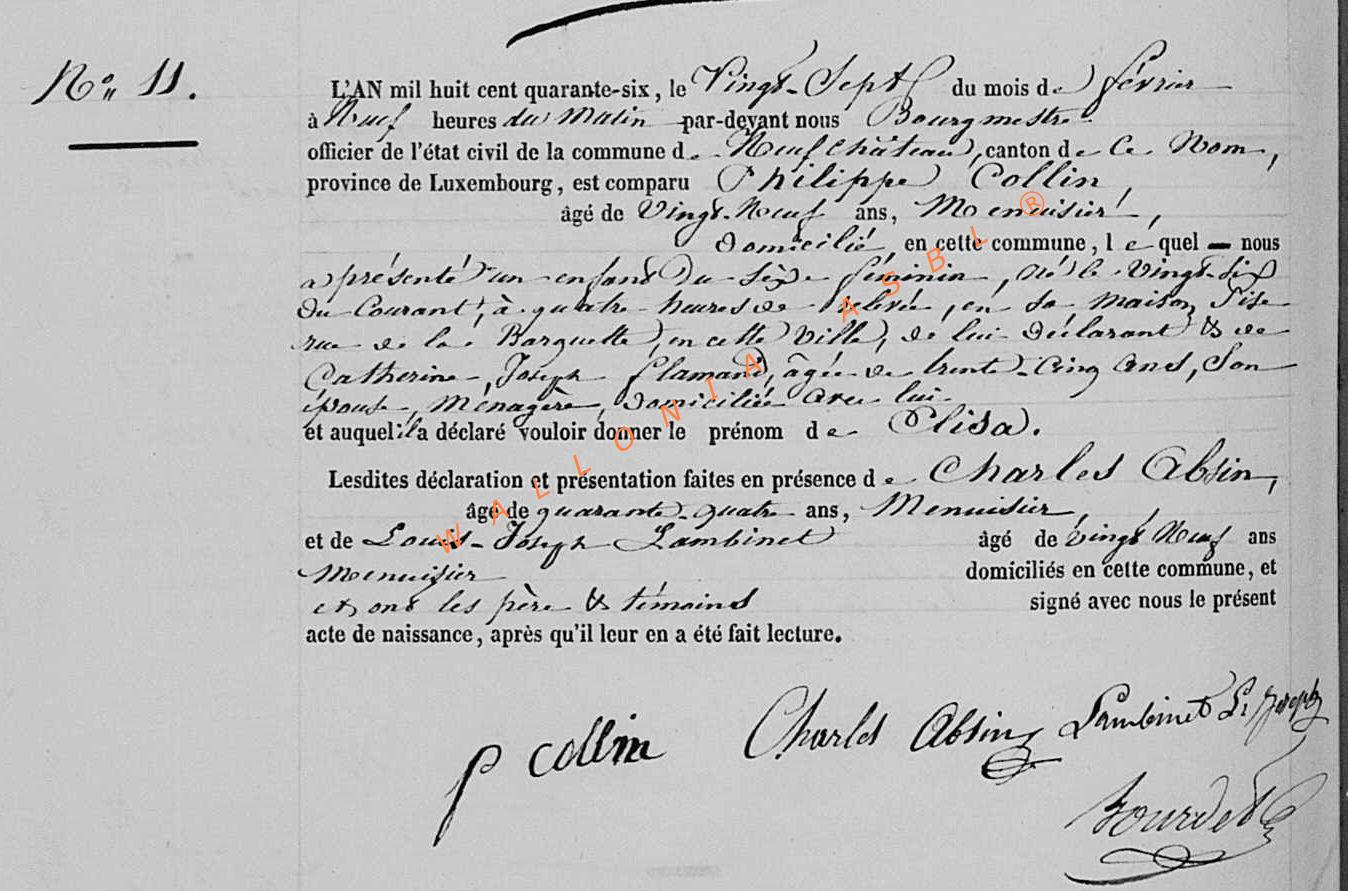 N° 11.
L'AN mil huit cent quarante-six, le Vingt-Sept du mois de février
à Neuf heures du Matin par-devant nous Bourgmestre
officier de l'état civil de la commune de Neufchâteau, canton de Ce Nom,
province de Luxembourg, est comparu Philippe Collin,
âgé de Vingt-Neuf ans, Menuisier,
domicilié en cette commune, lequel nous
a présenté un enfant du sèxe féminin, né le vingt-six
du Courant, à quatre heures de relevée, en sa maison, Sise
rue de la Barquette, en cette Ville, de lui déclarant & de
Catherine, Joseph flamand, âgée de trente-Cinq ans, Son
épouse, Ménagère, domiciliée avec lui
et auquel il a déclaré vouloir donner le prénom de Elisa.
Lesdites déclaration et présentation faites en présence de Charles Absin,
âgé de quarante-quatre ans, Menuisier,
et de Louis-Joseph Lambinet âgé de vingt Neuf ans
Menuisier domiciliés en cette commune, et
et ont les père & témoins signé avec nous le présent
acte de naissance, après qu'il leur en a été fait lecture.
p collin Charles Absin Lambinet L. Joseph
Bourdet
WALLONIA ASBL ®